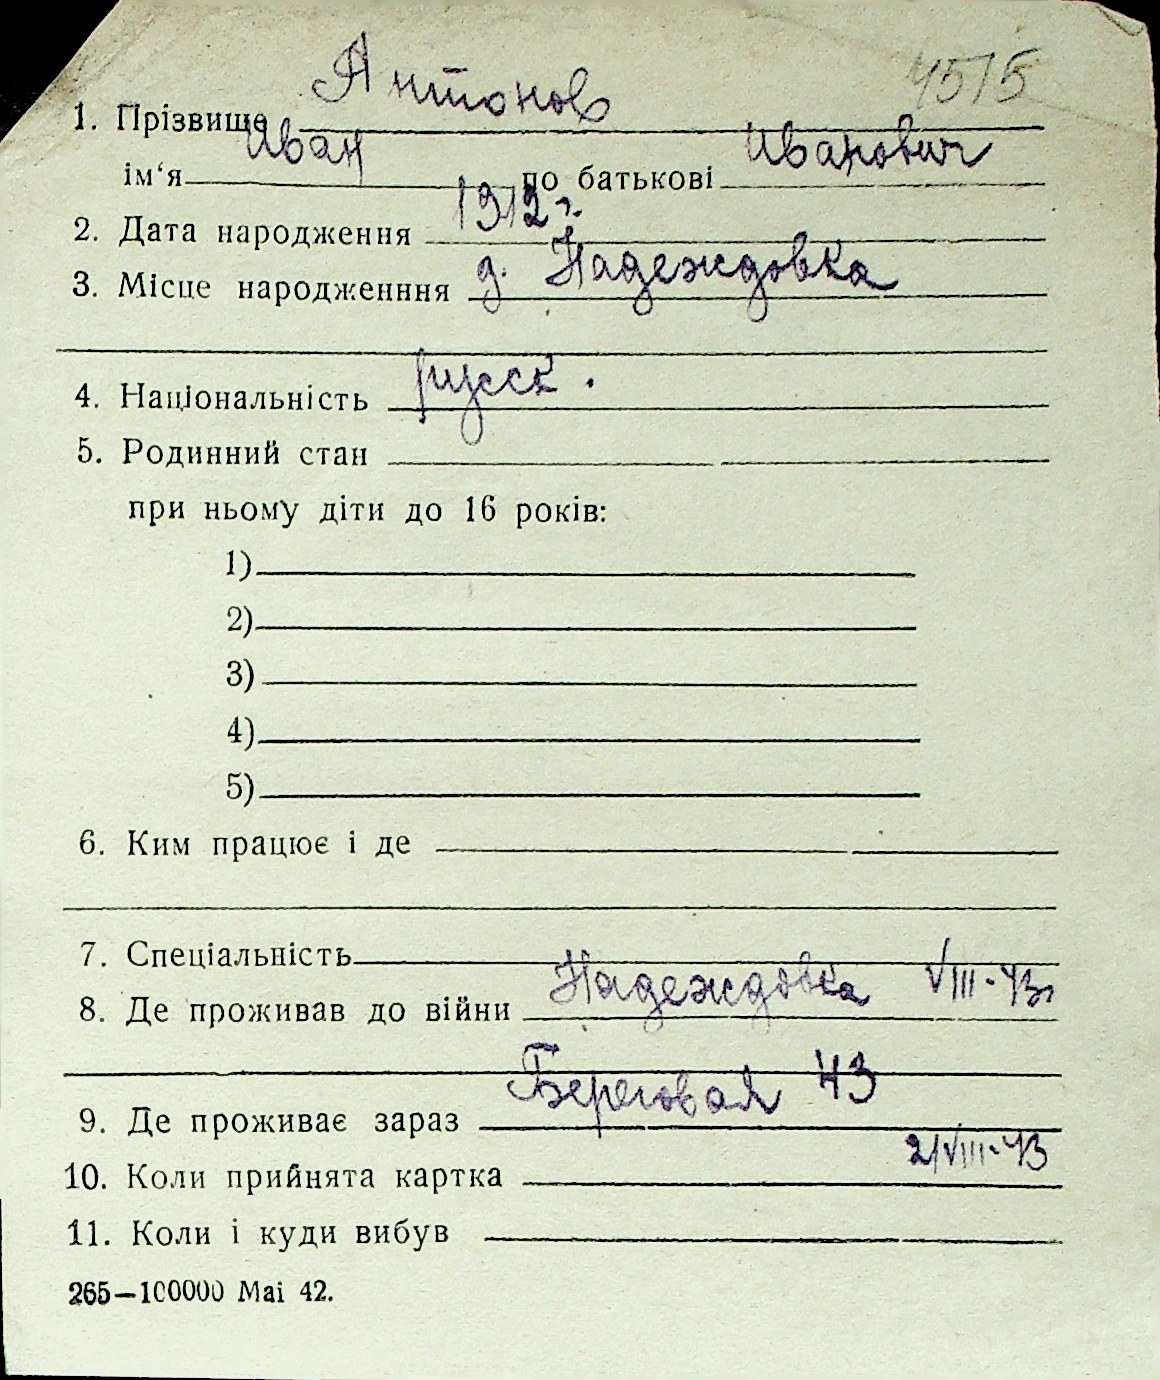 4515
Антонов
1. Прізвище
Иван Иванович
ім‘я по батькові
1912 г.
2. Дата народження
д. Надеждовка
3. Місце народженння
русск.
4. Національність
5. Родинний стан
при ньому діти до 16 років:
1)
2)
3)
4)
5)
6. Ким працює і де
7. Спеціальність
Надеждовка VIII-43г
8. Де проживав до війни
Береговая 43
9. Де проживає зараз
2/VIII-43
10. Коли прийнята картка
11. Коли і куди вибув
265—100000 Mai 42.